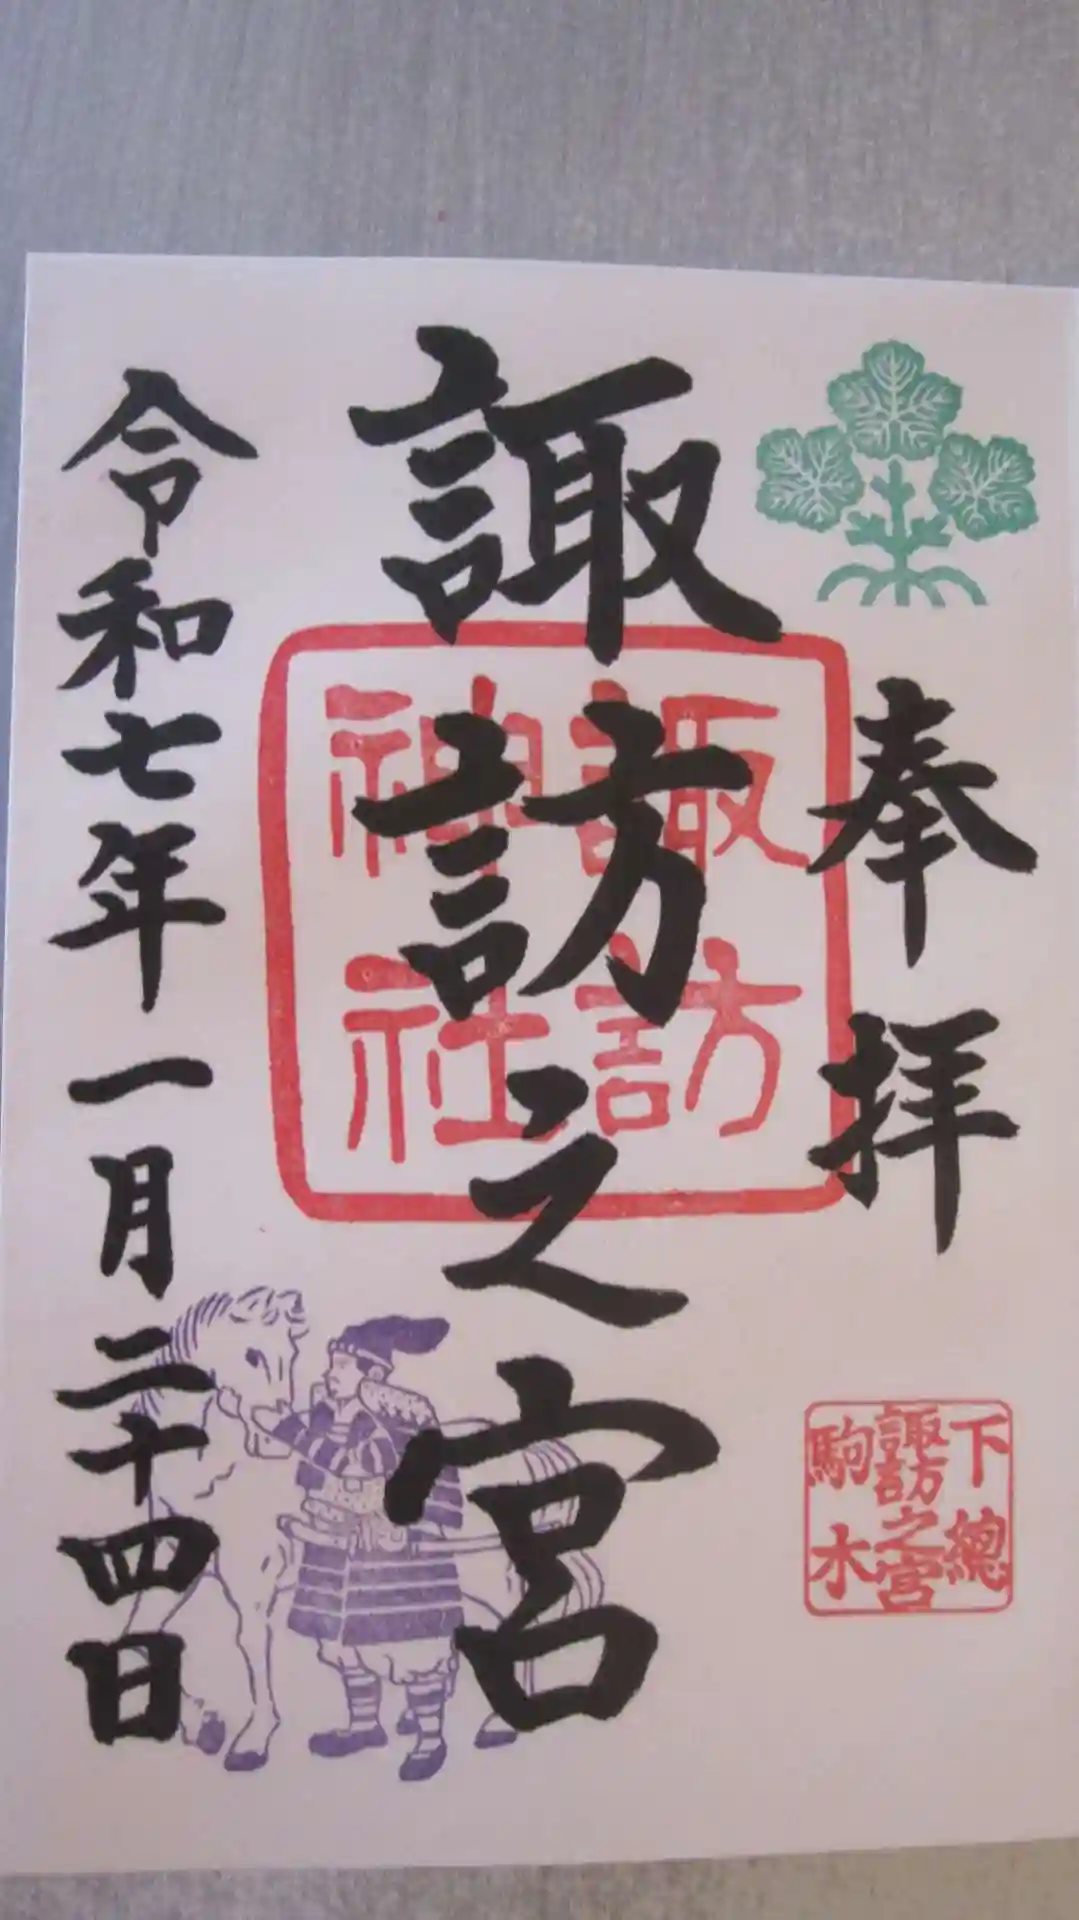 奉拝
下總
諏訪之宮
駒木
諏訪之宮
諏訪
神社
令和七年一月二十四日